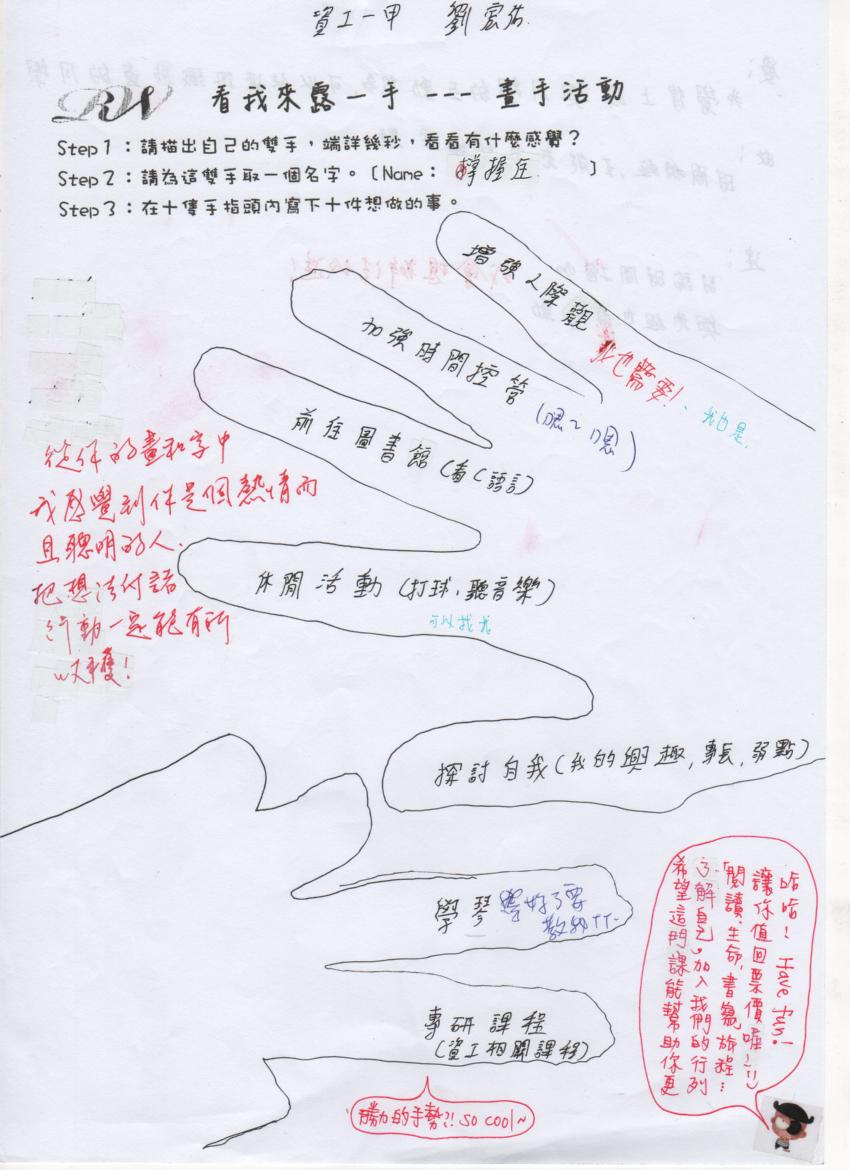 資工一甲 劉宏佑
RW 看我來露一手---畫手活動
Step 1：請描出自己的雙手，端詳幾秒，看看有什麼感覺？
Step 2：請為這雙手取一個名字。〔Name： 握 〕
Step 3：在十隻手指頭內寫下十件想做的事。
增強人際觀
我也需要!
我也是.
加強時間控管
(嗯~嗯)
前往圖書館(看C語言)
從你的畫和字中
我感覺到你是個熱情而
且聰明的人.
把想法付諸
行動一定能有所
收獲!
休閒活動(打球,聽音樂)
可以找我
探討自我(我的興趣,專長,弱點)
學琴
學好了要
教我TT-
專研課程
(資工相關課程)
勝力的手勢?! so cool~
哈哈! Have fun!
讓你值回票價喔~!!
「閱讀.生命,書寫.旅程」
希望這門課能幫助你更
了解自己,加入我們的行列